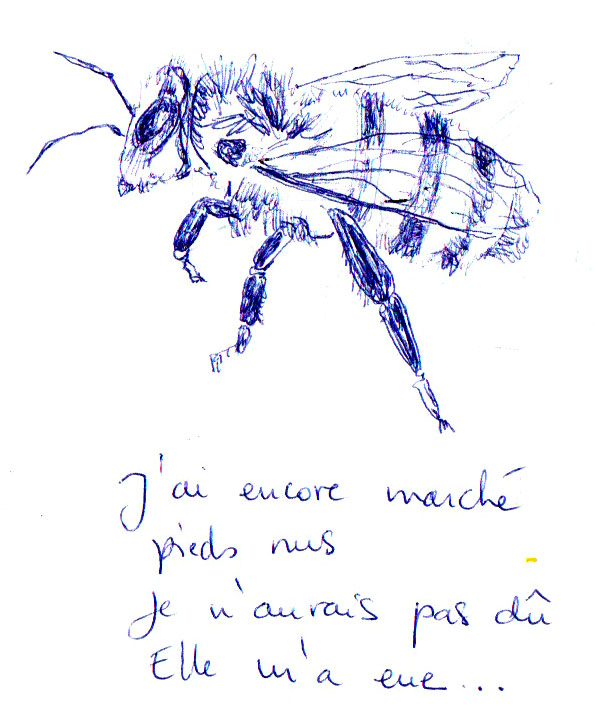 J'ai encore marché
pieds nus
Je n'aurais pas dû
Elle m'a eue...